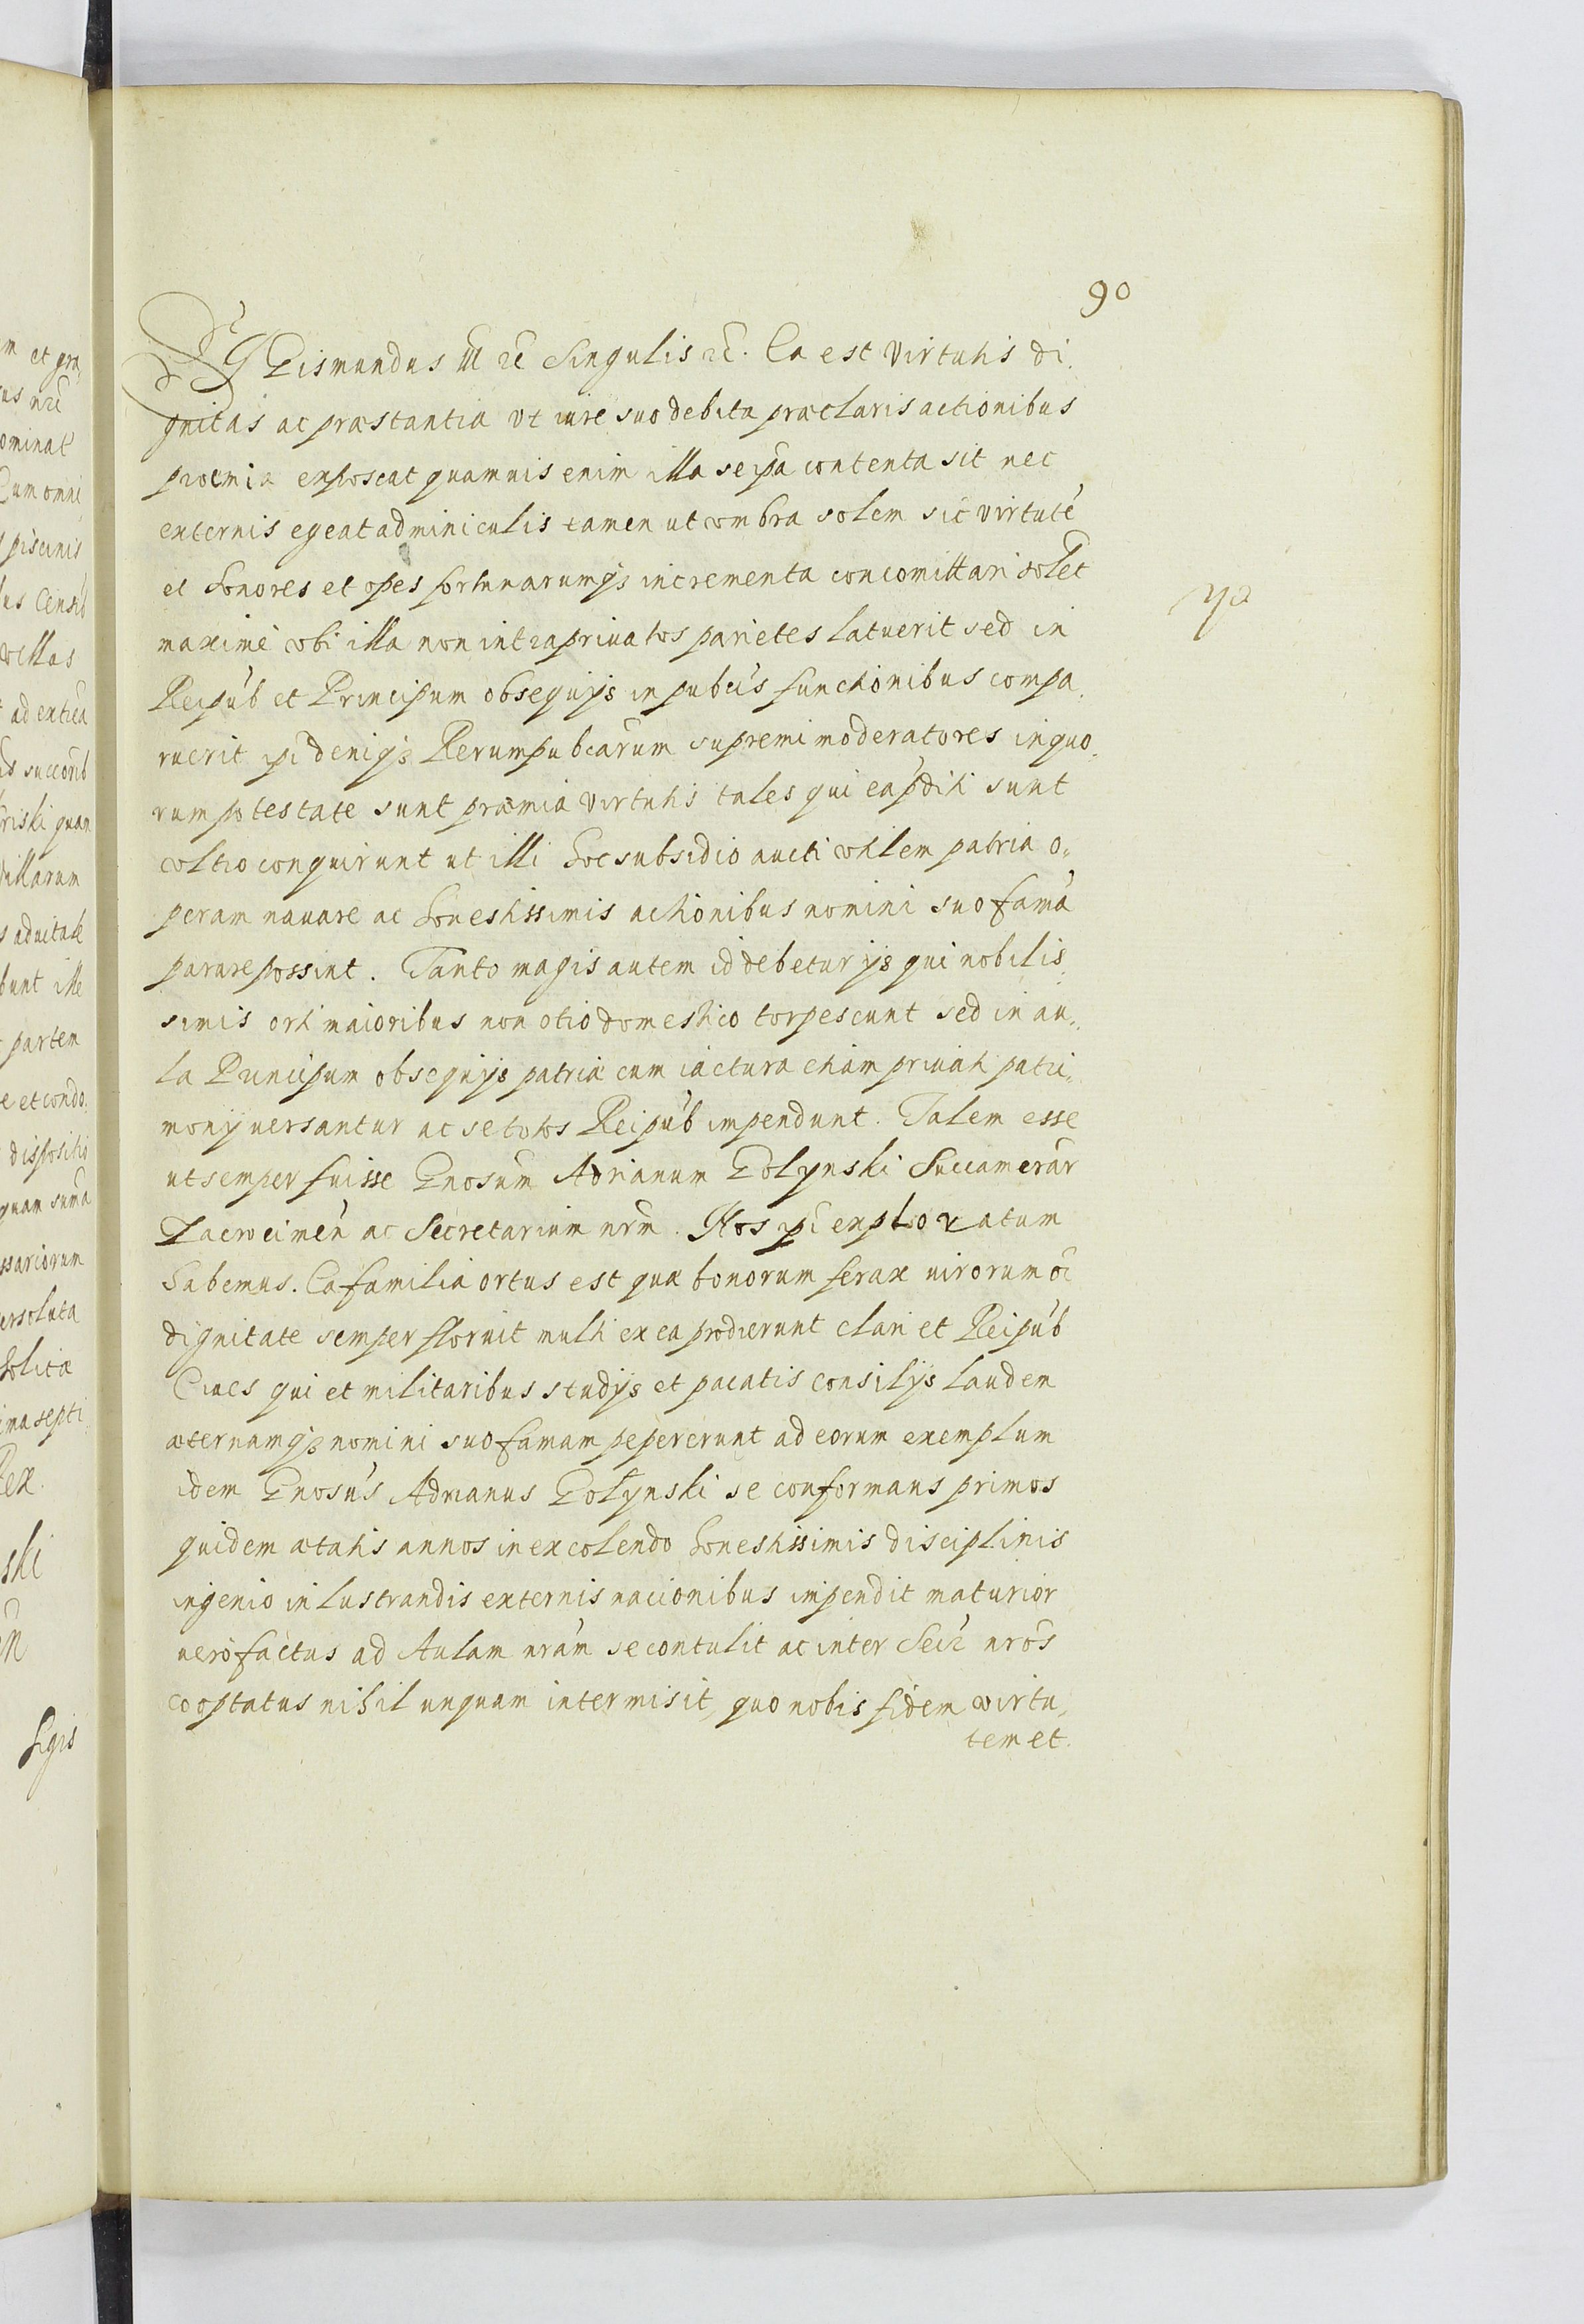 90
SIGismundus III etc Singulis etc. Ea est virtutis di
gnitas ac præstantia vt iure suo debita præclaris actionibus
præmia exposcat quamuis enim illa se ipa contenta sit nec
externis egeat adminiculis tamen ut vmbra solem sic virtute
et honores et opes fortunarumq; incrementa concomittari solet
maxime vbi illa non intra priuatos parietes latuerit sed in
Reipub et Principum obsequijs in pubcis functionibus compa
ruerit ipi deniq; Rerumpubcarum supremi moderatores in quo
rum potestate sunt præmia virtutis tales qui ea pditi sunt
vltro conquirunt ut illi hoc subsidio aucti vtilem patriæ o
peram nauare ac honestissimis actionibus nomini suo fama
parare possint. Tanto magis autem id debetur ijs qui nobilis
simis orti maioribus non otio domestico torpescunt sed in au
la Principum obsequijs patriæ cum iactura etiam priuati patri
monij uersantur ac se totos Reipub impendunt. Talem esse
ut semper fuisse Gnosum Adrianum Golynski Succamerar
Zacrocimen ac Secretarium nrm. Nos ipi exploratum
habemus. Ea familia ortus est quæ bonorum ferax uirorum oi
dignitate semper floruit multi ex ea prodierunt clari et Reipub
Ciues qui et militaribus studijs et pacatis consilijs laudem
æternamq; nomini suo famam pepererunt ad eorum exemplum
idem Gnosus Adrianus Golynski se conformans primos
quidem ætatis annos in excolendo honestissimis disciplinis
ingenio in lustrandis externis nacionibus impendit maturior
uero factus ad Aulam nram se contulit ac inter Secr nros
cooptatus nihil unquam intermisit quo nobis fidem virtu
tem et